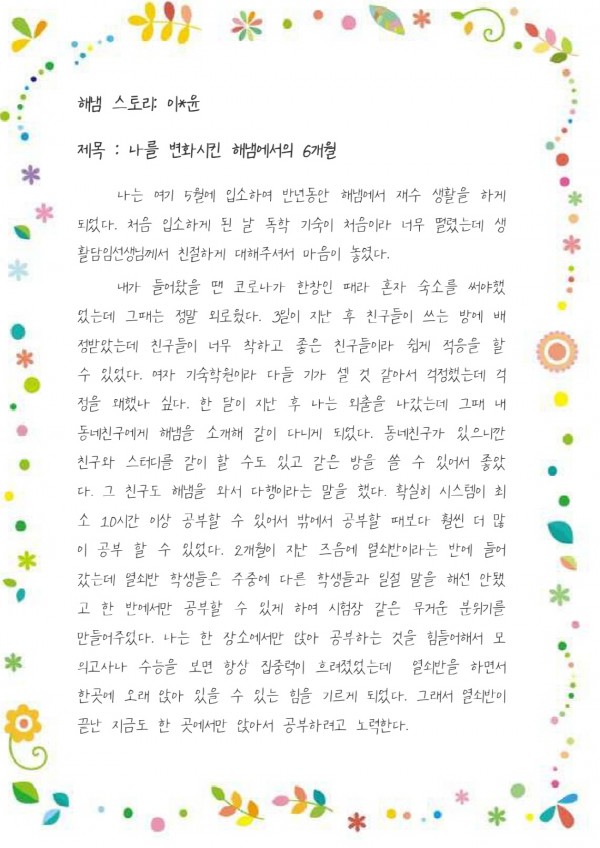 해냄 스토리: 이*윤
제목 : 나를 변화시킨 해냄에서의 6개월
나는 여기 5월에 입소하여 반년동안 해냄에서 재수 생활을 하게
되었다. 처음 입소하게 된 날 독학 기숙이 처음이라 너무 떨렸는데 생
활담임선생님께서 친절하게 대해주셔서 마음이 놓였다.
내가 들어왔을 땐 코로나가 한창인 때라 혼자 숙소를 써야했
었는데 그때는 정말 외로웠다. 3일이 지난 후 친구들이 쓰는 방에 배
정받았는데 친구들이 너무 착하고 좋은 친구들이라 쉽게 적응을 할
수 있었다. 여자 기숙학원이라 다들 기가 셀 것 같아서 걱정했는데 걱
정을 왜했나 싶다. 한 달이 지난 후 나는 외출을 나갔는데 그때 내
동네친구에게 해냄을 소개해 같이 다니게 되었다. 동네친구가 있으니깐
친구와 스터디를 같이 할 수도 있고 같은 방을 쓸 수 있어서 좋았
다. 그 친구도 해냄을 와서 다행이라는 말을 했다. 확실히 시스템이 최
소 10시간 이상 공부할 수 있어서 밖에서 공부할 때보다 훨씬 더 많
이 공부 할 수 있었다. 2개월이 지난 즈음에 열쇠반이라는 반에 들어
갔는데 열쇠반 학생들은 주중에 다른 학생들과 일절 말을 해선 안됐
고 한 반에서만 공부할 수 있게 하여 시험장 같은 무거운 분위기를
만들어주었다. 나는 한 장소에서만 앉아 공부하는 것을 힘들어해서 모
의고사나 수능을 보면 항상 집중력이 흐려졌었는데 열쇠반을 하면서
한곳에 오래 앉아 있을 수 있는 힘을 기르게 되었다. 그래서 열쇠반이
끝난 지금도 한 곳에서만 앉아서 공부하려고 노력한다.